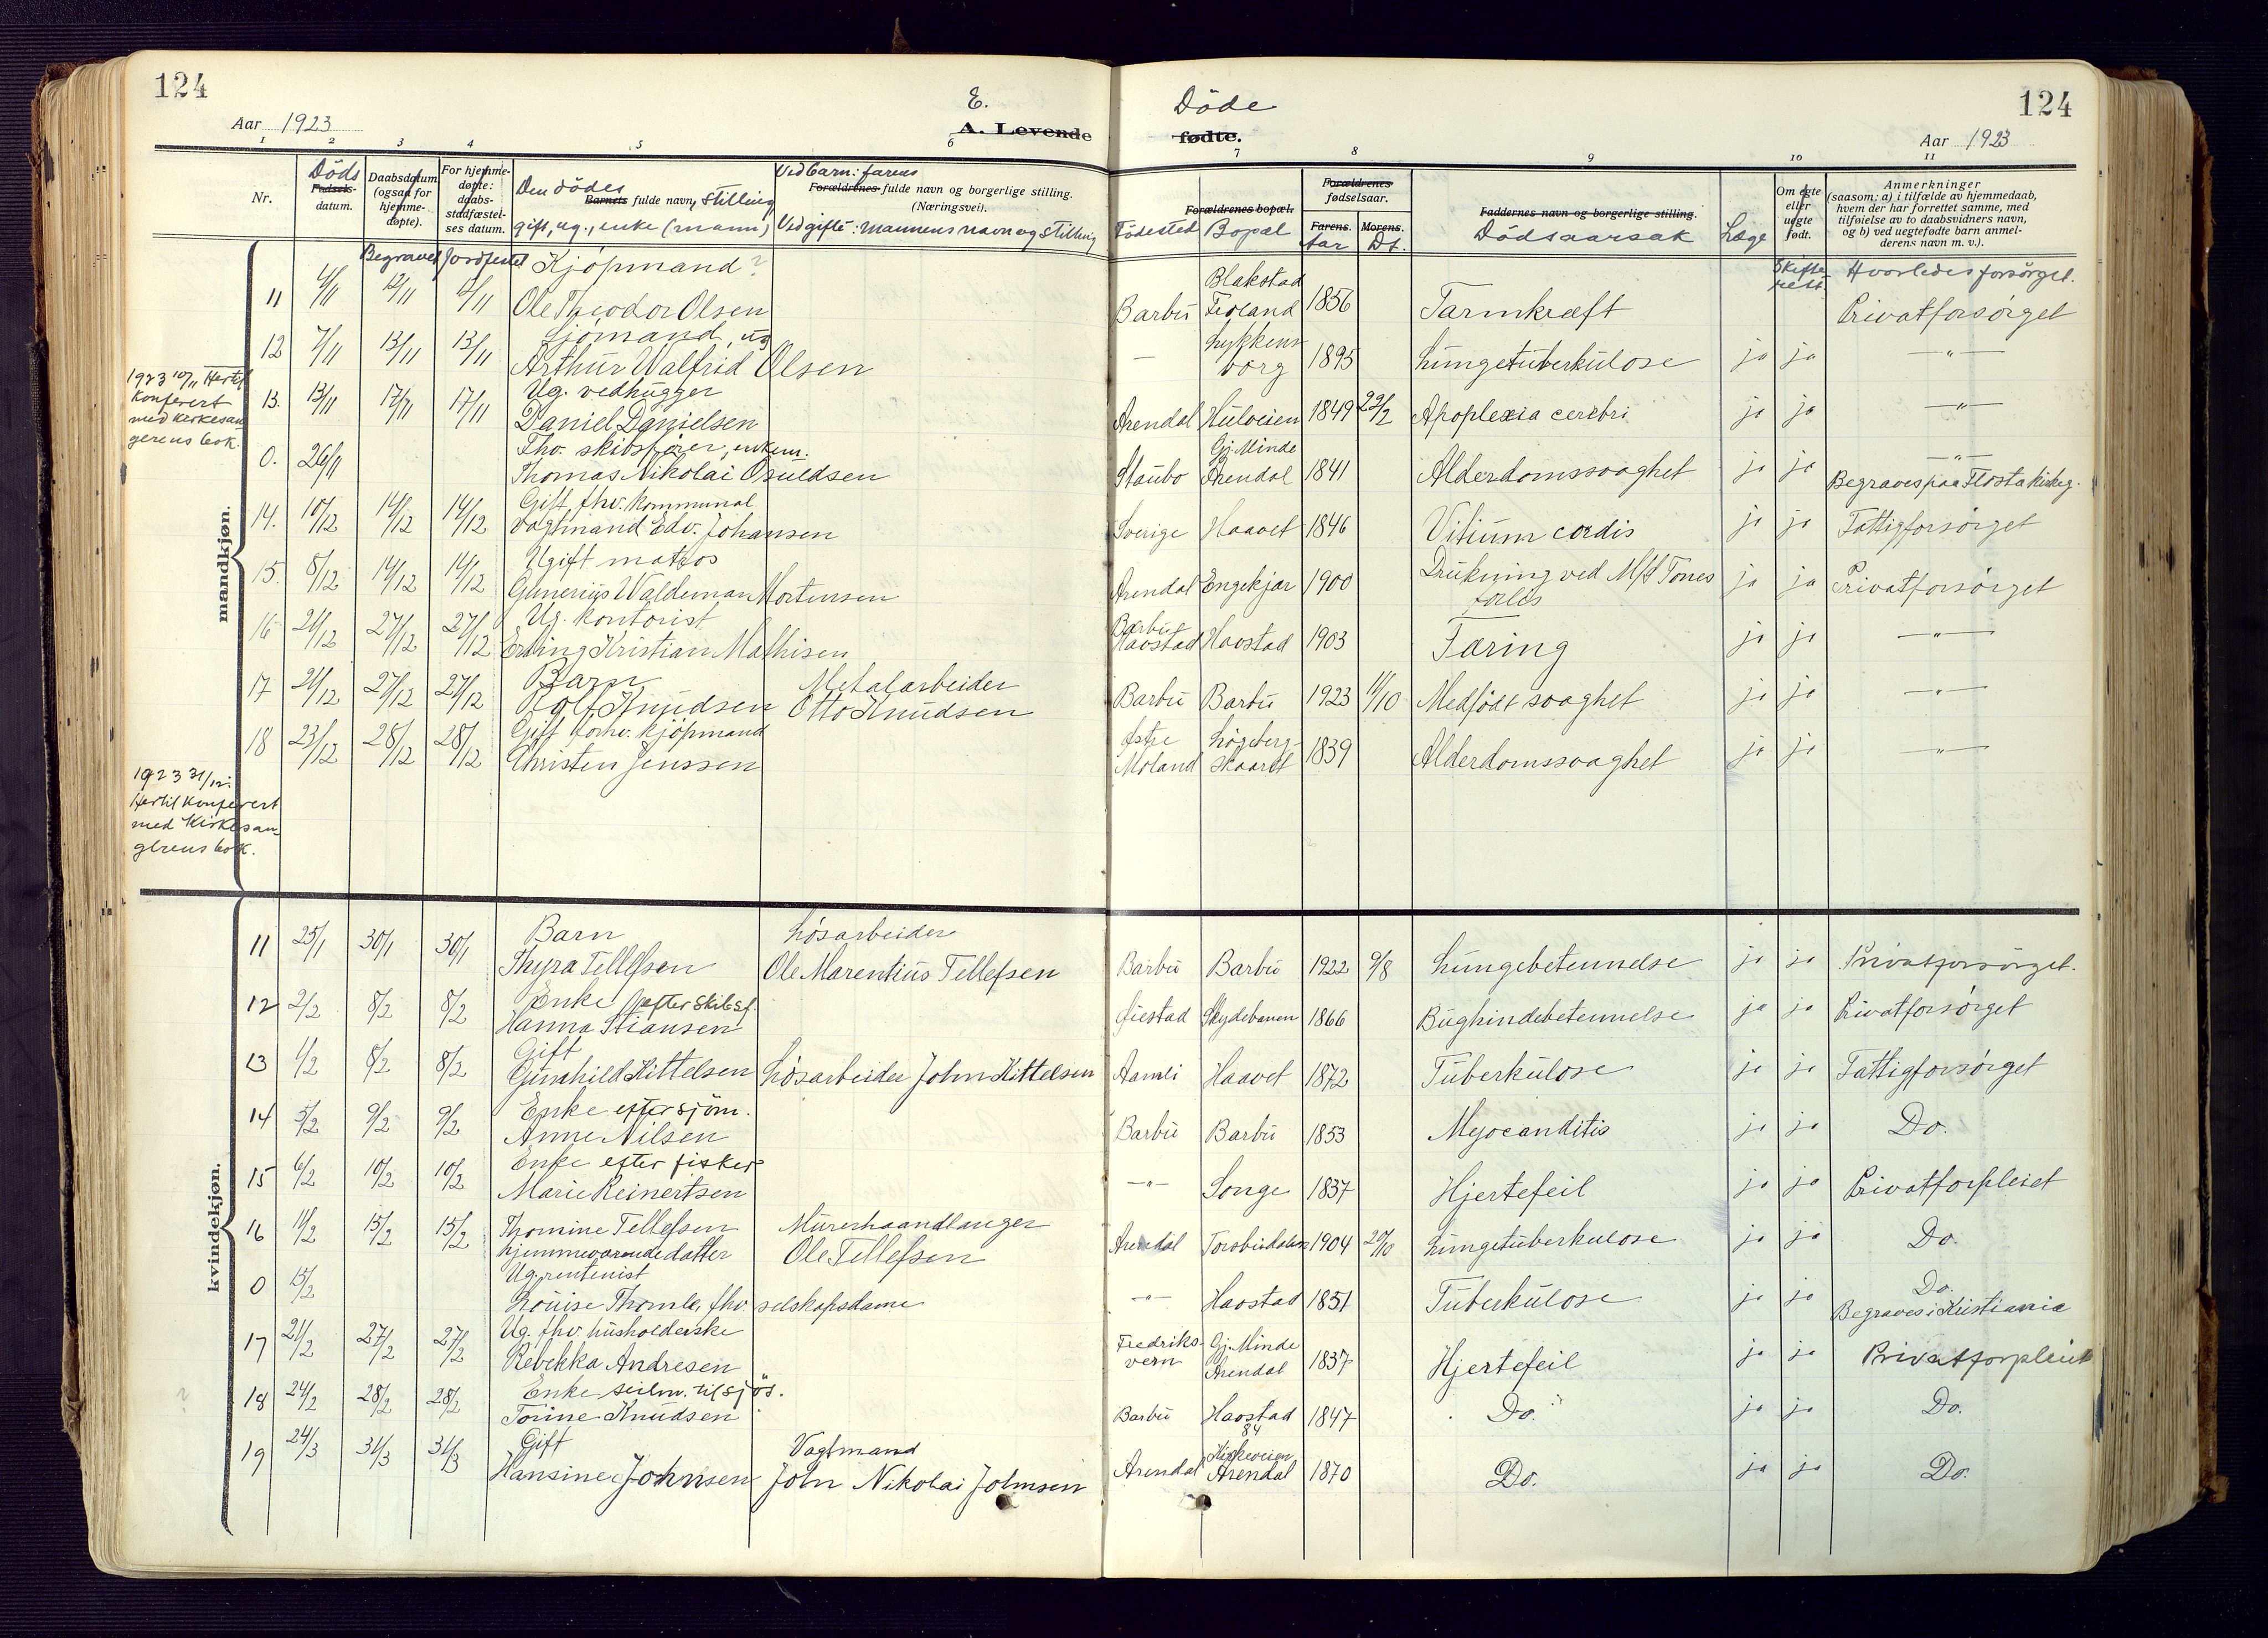 124
124
E. Døde
A. Levende fødte.
Aar 1923
Aar 1923
1 2 3 4 5 6 7 8 9 10 11
Nr.
Døds
Fødsels-
datum.
Daabsdatum
(ogsaa for
hjemme-
døpte).
Begravet
For hjemme-
døpte:
daabs-
stadfæstel-
ses datum.
Jordfestet
Den dødes
Barnets fulde navn, Stilling
gift, ug., enke (mann)
Ved barn: farens
Forældrenes fulde navn og borgerlige stilling.
(Næringsvei).
Ved gifte: Mannens navn og Stilling
Forældrenes bopæl.
Fødested Bopæl
Forældrenes
fødselsaar.
Farens.
Aar
Morens.
Dt.
Faddernes navn og borgerlige stilling.
Dødsaarsak
Læge
Om egte
eller
uegte
født.
Skifte
rett
Anmerkninger
(saasom: a) i tilfælde av hjemmedaab,
hvem der har forrettet samme, med
tilføielse av to daabsvidners navn,
og b) ved uegtefødte barn anmel-
derens navn m. v.).
Hvorledes forsørget.
mandkjøn.
Kjøpmand ?
11 4/11 12/11 12/11 Ole Theodor Olsen Barbu Blakstad Froland 1856 Tarmkræft Privatforsørget
Sjømand, ug
12 7/11 13/11 13/11 Arthur Walfrid Olsen — Lykkens borg 1895 Lungetuberkulose ja ja —"—
1923 10/11 Hertil
Konferert
med Kirkesan
gerens bok.
Ug. vedhugger
13. 13/11 17/11 17/11 Daniel Danielsen Arendal Hulveien 1849 29/2 Apoplexia cerebri ja ja —"—
Fhv. skibsfører, enkem.
0. 26/11 Thomas Nikolai Osuldsen Staubo Gj. Minde Arendal 1841 Alderdomssvaghet ja ja —"—
Begraves paa Flosta kirkeg.
Gift fhv. kommunal
14. 10/12 14/12 14/12 vagtmand Edv. Johansen Sverige Haavet 1846 Vitium cordis ja ja Fattigforsørget
Ugift matros
15. 8/12 14/12 14/12 Gunerius Waldeman Mortensen Arendal Engekjær 1900 Drukning ved M/S Tones ja ja Privatforsørget
forlis
Ug. kontorist
16 21/12 27/12 27/12 Erling Kristian Mathisen Barbu Haostad Haostad 1903 Tæring ja ja —"—
Barn Metalarbeider
17 21/12 27/12 27/12 Rolf Knudsen Otto Knudsen Barbu Barbu 1923 11/10 Medfødt svaghet ja ja —"—
Gift forhv. kjøpmand
18 23/12 28/12 28/12 Christen Jenssen Østre Moland Løgeberg- skaaret 1839 Alderdomssvaghet ja ja —"—
1923 31/12:
Hertil konferert
med Kirkesan
gerens bok.
kvindekjøn.
Barn Løsarbeider
11 25/1 30/1 30/1 Thyra Tellefsen Ole Marentius Tellefsen Barbu Barbu 1922 9/8 Lungebetennelse ja ja Privatforsørget.
Enke efter skibsf.
12 2/2 8/2 8/2 Hanna Stiansen Øiestad Skydebanen 1866 Bughindebetennelse ja ja Privatforsørget
Gift
13 1/2 8/2 8/2 Gunhild Kittelsen Løsarbeider John Kittelsen Aamli Haavet 1872 Tuberkulose ja ja Fattigforsørget
Enke efter sjøm.
14 5/2 9/2 9/2 Anne Nilsen Barbu Barbu 1853 Myocanditis ja ja Do.
Enke efter fisker
15 6/2 10/2 10/2 Marie Reinertsen —"— Songe 1837 Hjertefeil ja ja Privatforpleiet
16 11/2 15/2 15/2 Thomine Tellefsen Murerhaandlanger
hjemmeværende datter Ole Tellefsen Arendal Torsbudalen 1904 20/10 Lungetuberkulose ja ja Do.
Ug. rentenist
0 15/2 Louise Thomle, fhv. selskapsdame —"— Haostad 1851 Tuberkulose ja ja Do.
Begraves i Kristiania
Ug. fhv. husholderske
17 21/2 27/2 27/2 Rebekka Andresen Fredriks- vern Gj. Minde Arendal 1837 Hjertefeil ja ja Privatforpleiet
Enke seilm. til sjøs.
18 24/2 28/2 28/2 Torine Knudsen Barbu Haostad 1847 Do. ja ja Do.
Gift Vagtmand
19 24/3 31/3 31/3 Hansine Johnsen John Nikolai Johnsen Arendal 84 Kirkeveien Arendal 1870 Do. ja ja Do.